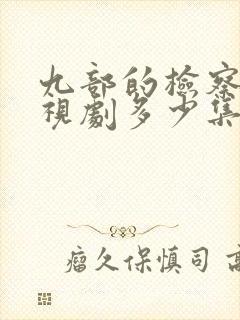 九部的檢察
視劇多少集
瘤久保慎司 高